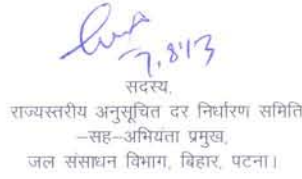 7.8.13
सदस्य,
राज्यस्तरीय अनुसूचित दर निर्धारण समिति
–सह–अभियंता प्रमुख,
जल संसाधन विभाग, बिहार, पटना।